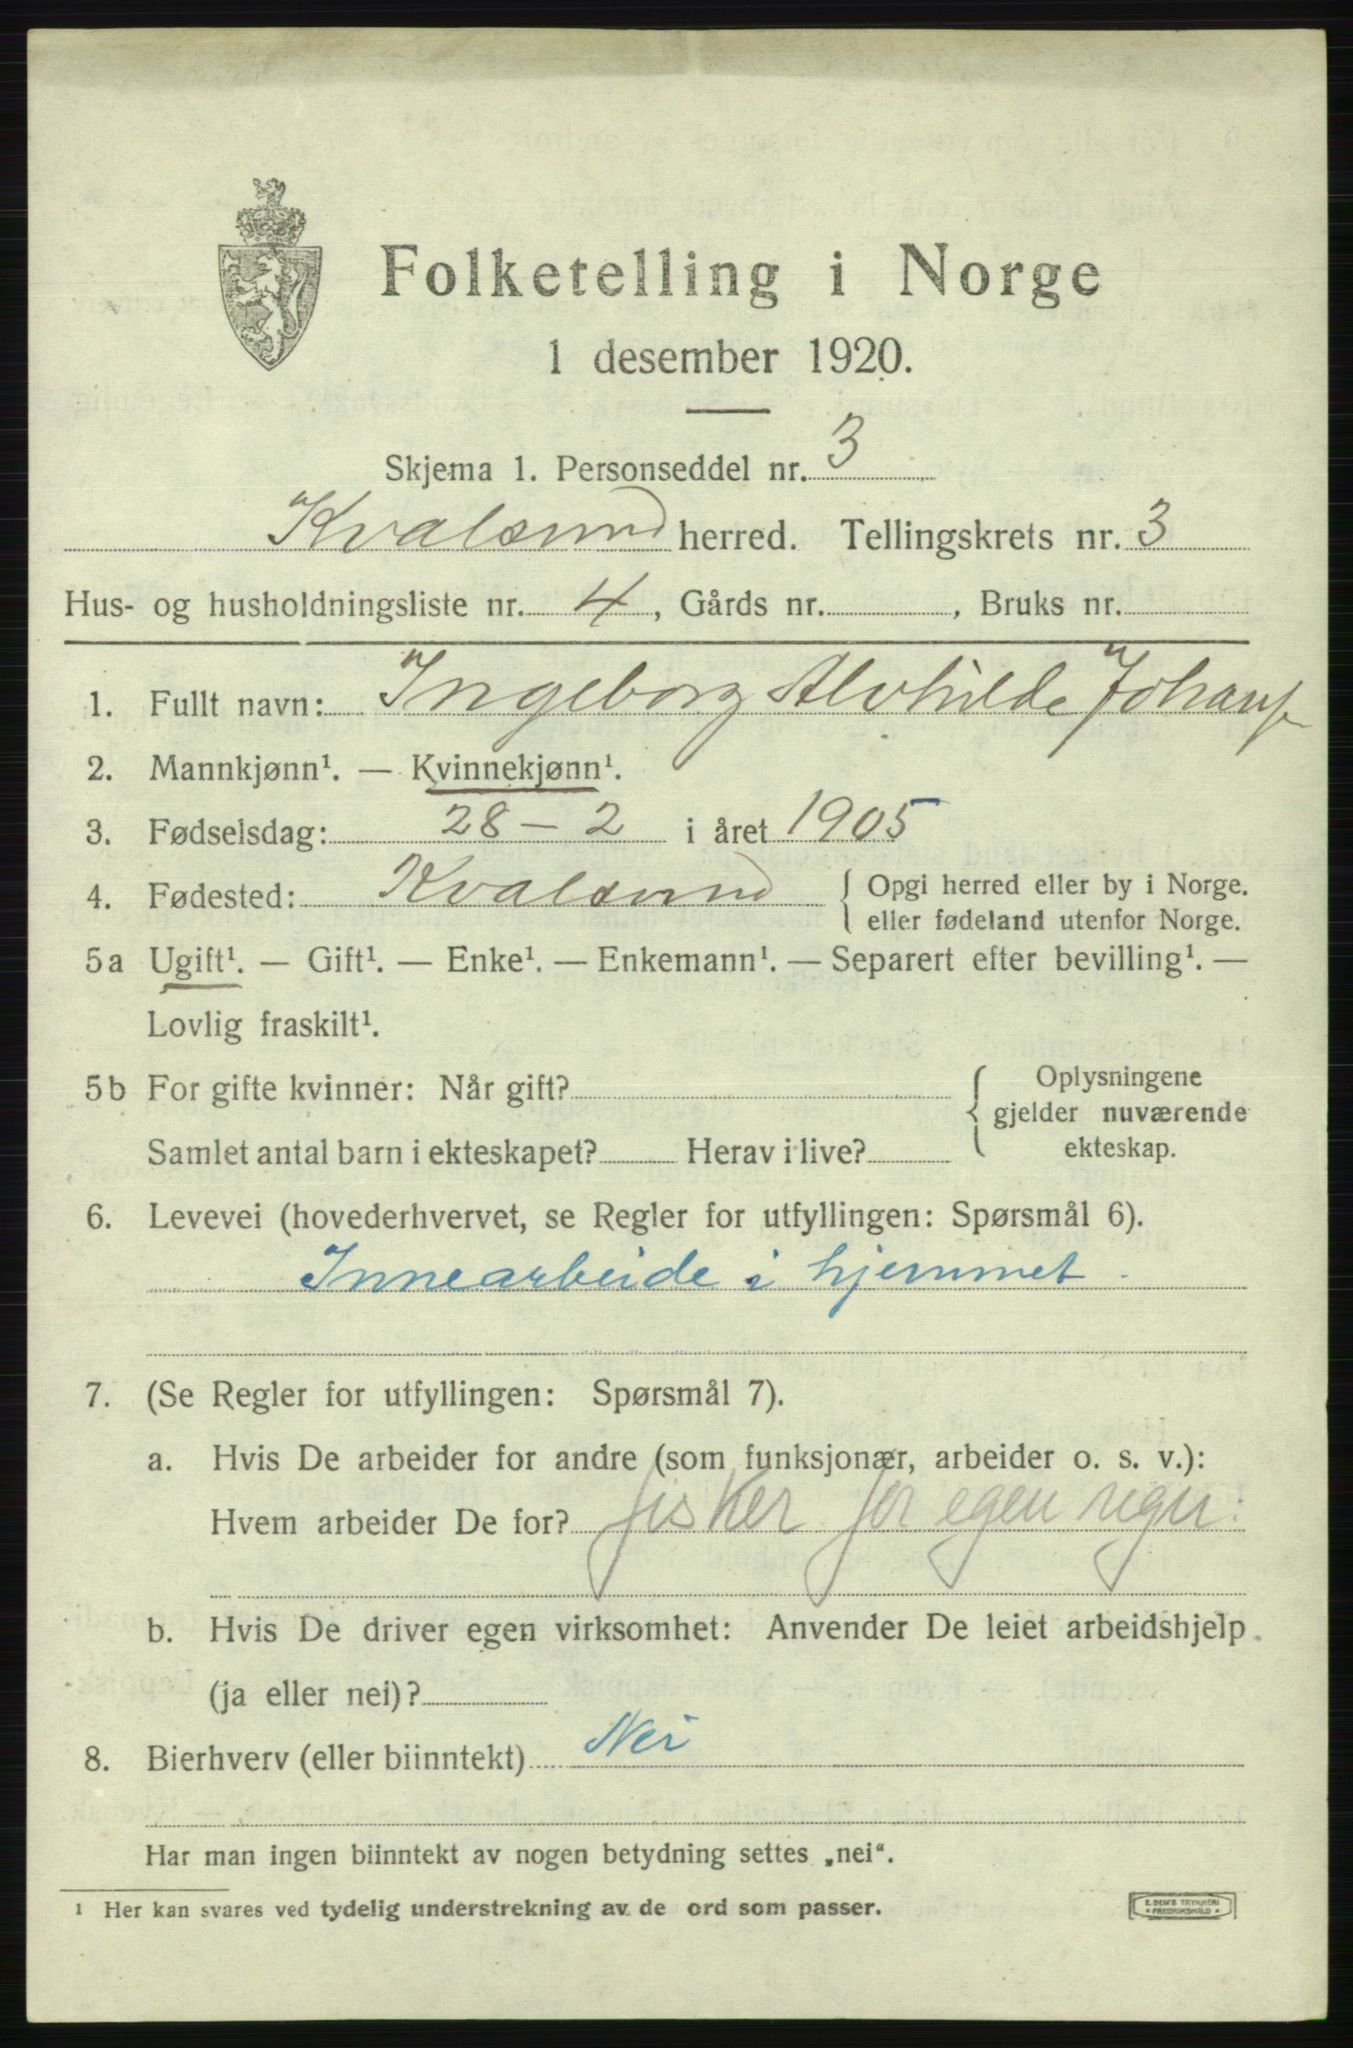 Folketelling i Norge
1 desember 1920.
Skjema 1. Personseddel nr. 3
Kvalsund herred. Tellingskrets nr. 3
Hus- og husholdningsliste nr. 4, Gårds nr. , Bruks nr.
1. Fullt navn: Ingeborg Alvhilde Johansen
2. Mannkjønn¹. — Kvinnekjønn¹.
3. Fødselsdag: 28 – 2 i året 1905
4. Fødested: Kvalsund { Opgi herred eller by i Norge.
eller fødeland utenfor Norge.
5a Ugift¹. — Gift¹. — Enke¹. — Enkemann¹. — Separert efter bevilling¹. —
Lovlig fraskilt¹.
5b For gifte kvinner: Når gift? { Oplysningene
gjelder nuværende
Samlet antal barn i ekteskapet? Herav i live? ekteskap.
6. Levevei (hovederhvervet, se Regler for utfyllingen: Spørsmål 6).
Innearbeide i hjemmet.
7. (Se Regler for utfyllingen: Spørsmål 7).
a. Hvis De arbeider for andre (som funksjonær, arbeider o. s. v.):
Hvem arbeider De for? fisker for egen regn:
b. Hvis De driver egen virksomhet: Anvender De leiet arbeidshjelp
(ja eller nei)?
8. Bierhverv (eller biinntekt) Nei
Har man ingen biinntekt av nogen betydning settes „nei“.
¹ Her kan svares ved tydelig understrekning av de ord som passer.
E. SEM'S TRYKKERI
FREDRIKSHALD